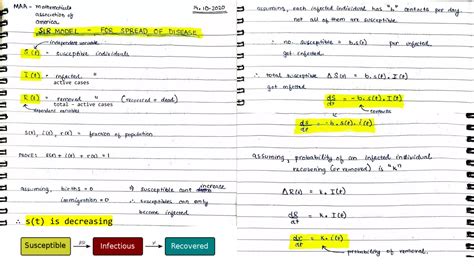 MAA - Mathematics
association of
America
14-10-2020
SIR MODEL - FOR SPREAD OF DISEASE
independent variable
S(t) = susceptible individuals
I(t) = infected "
active cases
R(t) = removed " (recovered + dead)
total - active cases
dependent variables
s(t), i(t), r(t) = fraction of population
s(t) + i(t) + r(t) = 1
assuming, births = 0
immigration = 0
susceptible can't increase
∴ susceptible can only
become infected
∴ s(t) is decreasing
Susceptible
Infectious
Recovered
assuming, each infected individual has "b" contacts per day
not all of them are susceptible
∴ no. susceptible = b.s(t) per infected
got infected
∴ total susceptible ΔS(t) = b.s(t).I(t)
got infected
dS/dt = -b.s(t).I(t)
ds/dt = -b.s(t).i(t)
assuming, probability of an infected individual
recovering (or removed) is "k"
ΔR(t) = k.I(t)
dR/dt = k.I(t)
dr/dt = k.i(t)
probability of removed.